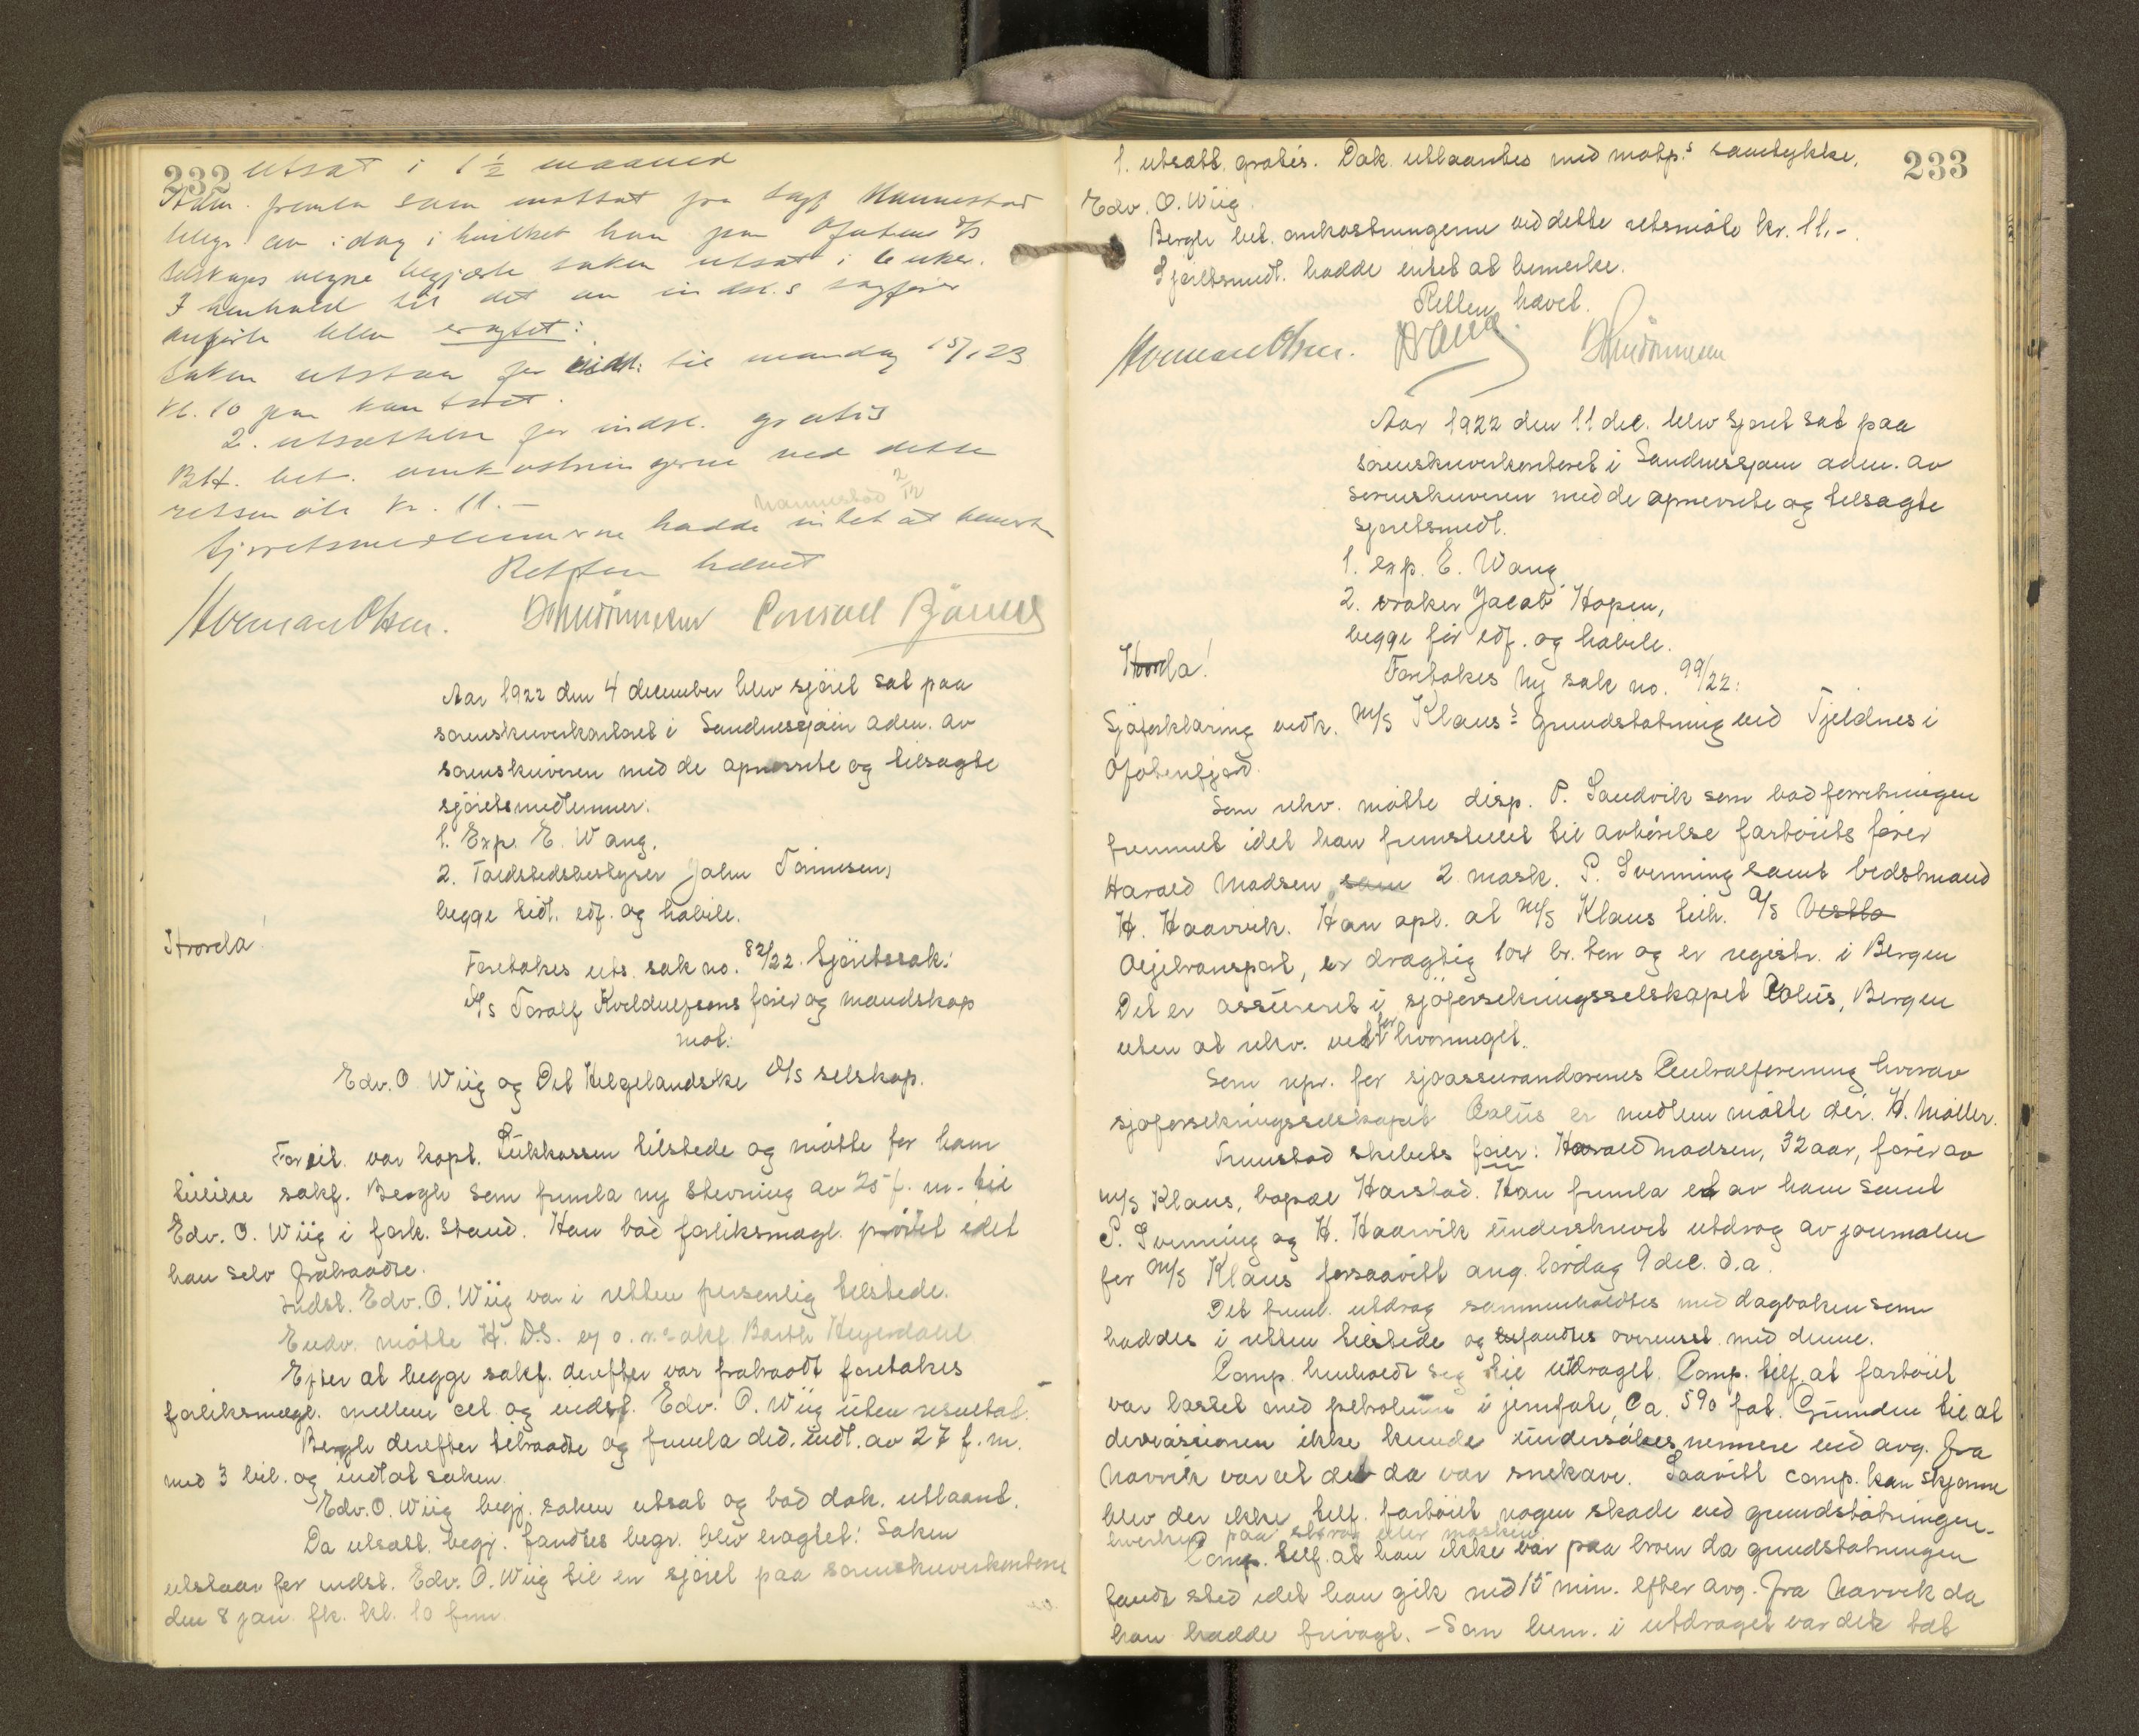 232 utsat i 1½ maaned
Adm. fremla som mottat fra sagf. Mannestad
telegr. av idag i hvilket han paa Ofotens D/S
selskaps vegne begjærte saken utsat i 6 uker.
I henhold til det av indst.s sagfører
anførte blev eragtet:
Saken utstaar for indst. til mandag 15/1 23
kl. 10 paa kontoret.
2. utsættelse for indst. gratis
B.H. bet. omkostningerne ved dette
retsmøte kr. 11.-
Mannestad 2/12
Sjøretsmedlemmerne hadde intet at bemerke
Retten hævet
Herman Olsen. Conrad
Aar 1922 den 4 december blev sjøret sat paa
sorenskriverkontoret i Sandnessjøen adm. av
sorenskriveren med de opnævnte og tilsagte
sjøretsmedlemmer:
1. Exp. E. Wang.
2. Toldstedsbestyrer John Tønnesen,
begge tidl. edf. og habile.
Hvorda!
Foretokes uts. sak no. 82/22. Sjøretssak:
D/S Toralf Kveldulfsøns fører og mandskap
mot:
Edv. O. Wiig og Det Helgelandske D/S selskap.
For cit. var kapt. Lükkassen tilstede og møtte for ham
tillike sakf. Bergh som fremla ny stevning av 25 f. m. til
Edv. O. Wiig i fork. stand. Han bad forliksmægl. prøvet idet
han selv fratraadte.
Indst. Edv. O. Wiig var i retten personlig tilstede.
Endv. møtte H. D.S. ev o.r.sakf. Barth Heyerdahl.
Efter at begge sakf. derefter var fratraadt foretokes
forliksmægl. mellem cit. og indst. Edv. O. Wiig uten resultat.
Bergh derefter tiltraadte og fremla did. indl. av 27 f. m.
med 3 bil. og indlot saken.
Edv. O. Wiig begj. saken utsat og bad dok. utlaant.
Da utsætt. begj. fandtes begr. blev eragtet: Saken
utstaar for indst. Edv. O. Wiig til en sjøret paa sorenskriverkontoret
den 8 jan. fk. kl. 10 form.
1. utsætt. gratis. Dok. utlaantes med motp.s samtykke. 233
Edv. O. Wiig.
Bergh bet. omkostningerne ved dette retsmøte kr. 11.-
Sjøretsmedl. hadde intet at bemerke.
Retten hævet.
Herman Olsen.
Aar 1922 den 11 dec. blev sjøret sat paa
sorenskriverkontoret i Sandnessjøen adm. av
sorenskriveren med de opnævnte og tilsagte
sjøretsmedl.
1. exp. E. Wang
2. vraker Jacob Hopen,
begge før edf. og habile.
Hvorda!
Foretokes ny sak no. 99/22:
Sjøforklaring vedk. M/S Klaus's grundstøtning ved Tjeldnes i
Ofotenfjord.
Som rekv. møtte disp. P. Sandvik som bad forretningen
fremmet idet han fremstillet til avhørelse fartøiets fører
Harald Madsen, som 2 mask. P. Svenning samt bedstmand
H. Haarvik. Han opl. at M/S Klaus tilh. A/S Vestlo
Oljetransport, er drægtig 104 br. ton og er registr. i Bergen
Det er assureret i sjøforsekringsselskapet Æolus, Bergen
uten at rekv. vet for hvormeget.
Som repr. for sjøassurandørenes Centralforening hvorav
sjøforsekringsselskapet Æolus er medlem møtte dir. H. Møller.
Fremstod skibets fører: Harald Madsen, 32 aar, fører av
M/S Klaus, bopæl Harstad. Han fremla et av ham samt
P. Svenning og H. Haarvik underskrevet utdrag av journalen
for M/S Klaus forsaavidt ang. lørdag 9 dec. d.a.
Det freml. utdrag sammenholdtes med dagboken som
haddes i retten tilstede og befandtes overensst. med denne.
Comp. henholdt seg til utdraget. Comp. tilf. at fartøiet
var lastet med petroleum i jernfate, ca. 590 fat. Grunden til at
deviasionen ikke kunde undersøkes nermere ved avg. fra
Narvik var at det da var snekave. Saavidt comp. kan skjønne
blev der ikke tilf. fartøiet nogen skade ved grundstøtningen.
hverken paa skrog eller maskin
Comp. tilf. at han ikke var paa broen da grundstøtningen
fandt sted idet han gik ned 15 min. efter avg. fra Narvik da
han hadde frivagt. - Som bem. i utdraget var det tæt